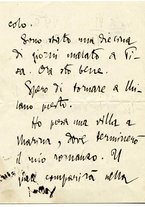 colo.
Sono stato una diecina
di giorni malato a Pi-
sa. Ora sto bene.
Spero di tornare a Mi-
lano presto.
Ho preso una villa a
Marina, dove terminerò
il mio romanzo. Il
quale comparirà nella